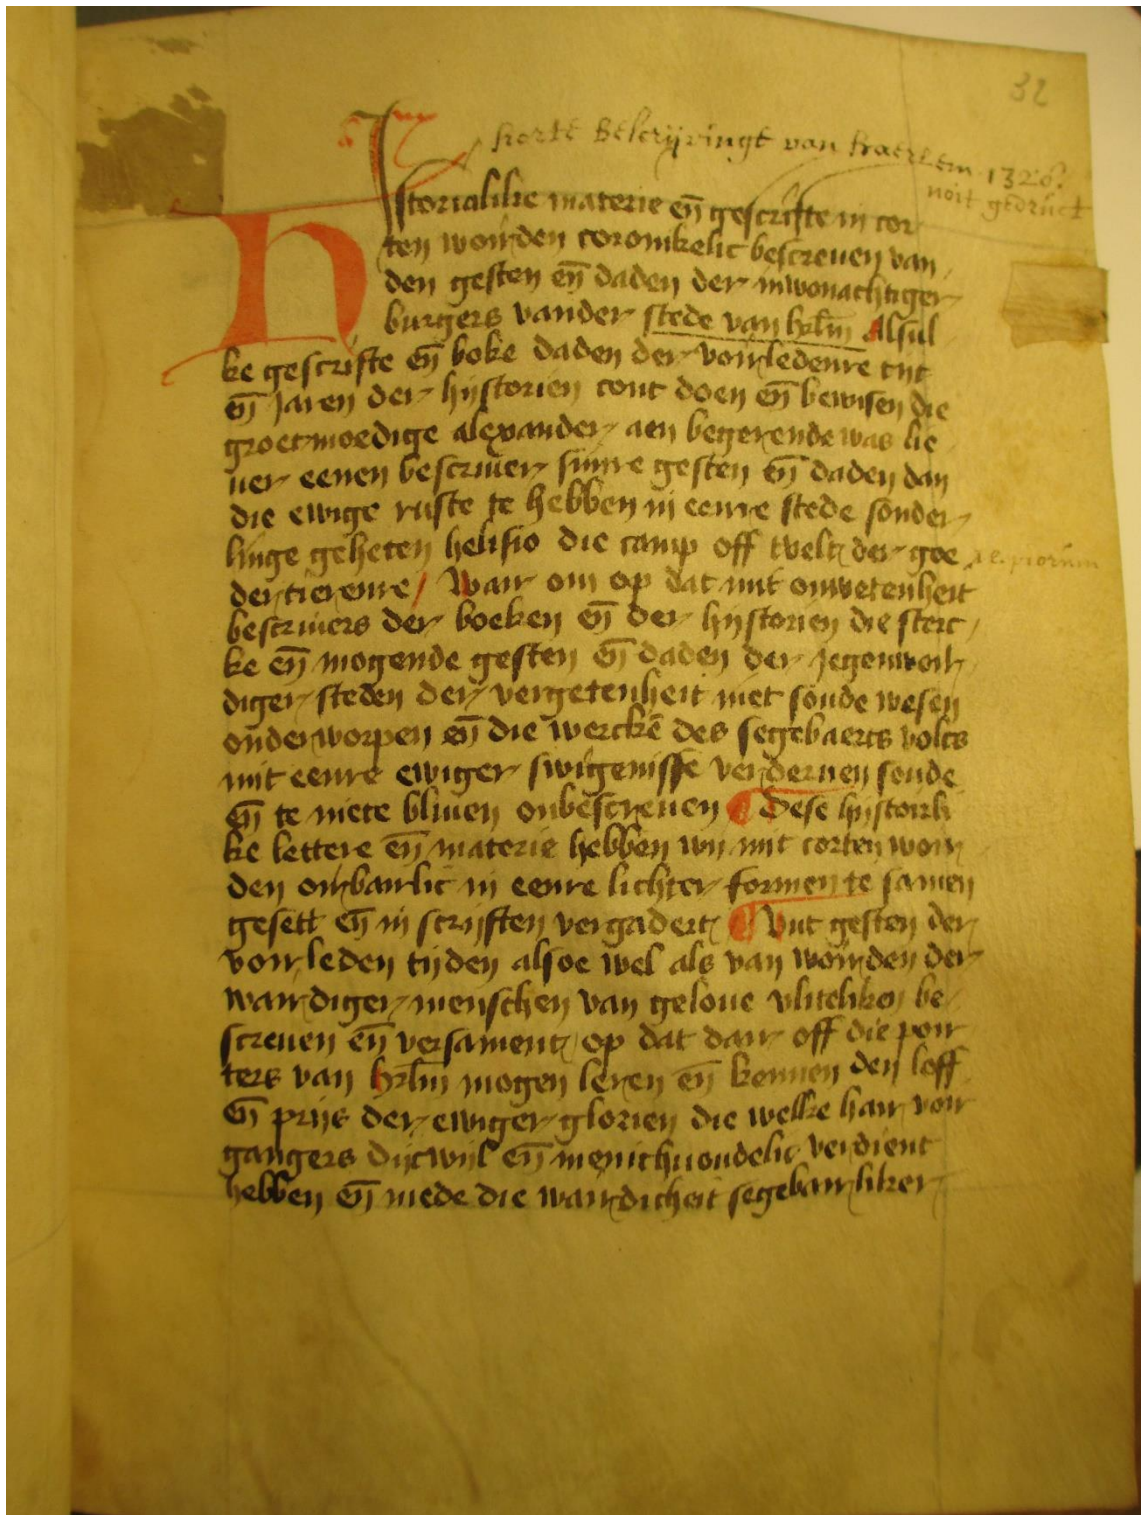 32
korte Belcrijvinge van Haerlem 1326.
noit gedruct
Historialike materie en̄ gescrifte in cor
ten woirden coronikelic bescreuen van
den gesten en̄ daden der inwonachtiger
burgers vander stede van hrl̄m Alsul
ke gescrifte en̄ boke daden der voirledenre tijt
en̄ Jaren der hijstorien cont doen en̄ bewisen die
groetmoedige alexander aen begerende was lie
uer eenen bescriuer sinre gesten en̄ daden dan
die ewige ruste te hebben in eenre stede sonder
linge geheten helisio die camp off twelc der goe
dertierenre / Wair om op dat mit onwetenheit
i.e. piorum
bescriuers der boeken en̄ der hijstorien die sterc
ke en̄ mogende gesten en̄ daden der jegenwoir
diger steden der vergetenheit niet soude wesen
onderworpen en̄ die werckē des segebaerts volcs
mit eenre ewiger swigenisse verderuen soude
en̄ te niete bliuen onbescreuen ¶ Dese hijstorili
ke lettere en̄ materie hebben wij mit corten woir
den oirbairlic in eenre lichter formen te samen
gesett en̄ in scrijften vergadert ¶ Vut gesten der
voirleden tijden alsoe wel als van woirden der
wairdiger menschen van geloue vliteliken be
screuen en̄ versament op dat dair off die poir
ters van hrl̄m mogen leren en̄ kennen den loff
en̄ prijs der ewiger glorien die welke hair voir
gangers dijcwijl en̄ menichuoudelic verdient
hebben en̄ mede die wairdicheit segebairliker